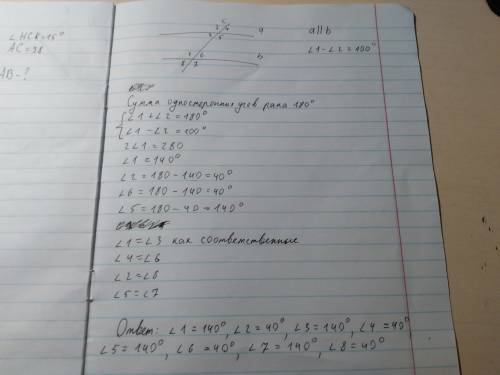 ∠HCK=15°
AC=38
AB-?
c
3 4 a
2 5
1 6 b
8 7
a||b
∠1-∠2=100°
Сумма односторонних углов равна 180°
∠1+∠2=180°
∠1-∠2=100°
2∠1=280
∠1=140°
∠2=180-140=40°
∠6=180-140=40°
∠5=180-40=140°
∠1=∠3 как соответственные
∠4=∠6
∠2=∠8
∠5=∠7
Ответ: ∠1=140°, ∠2=40°, ∠3=140°, ∠4=40°
∠5=140°, ∠6=40°, ∠7=140°, ∠8=40°